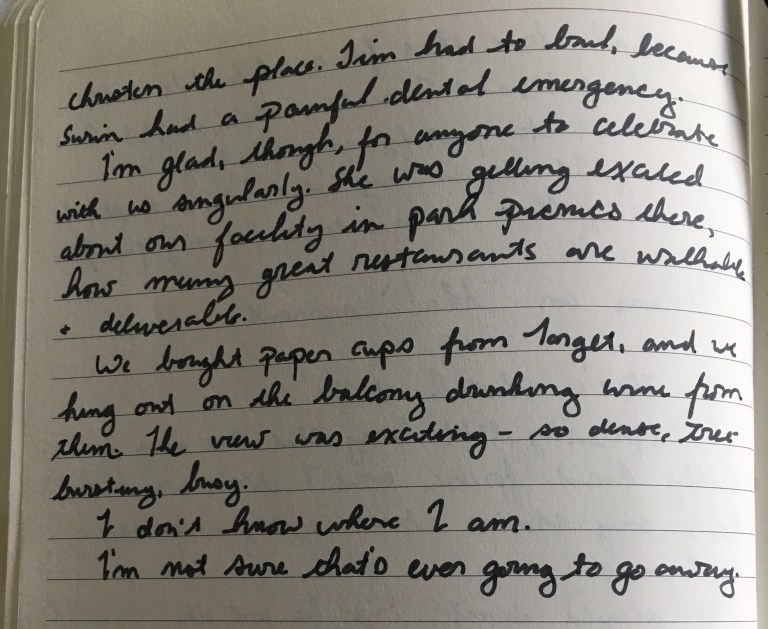 christen the place. Tim had to bail, because
Surin had a painful dental emergency.
I'm glad, though, for anyone to celebrate
with us singularly. She was getting excited
about our facility in park picnics there,
how many great restaurants are walkable
+ deliverable.
We bought paper cups from Target, and we
hung out on the balcony drinking wine from
them. The view was exciting – so dense, tree
bursting, busy.
I don't know where I am.
I'm not sure that's ever going to go away.